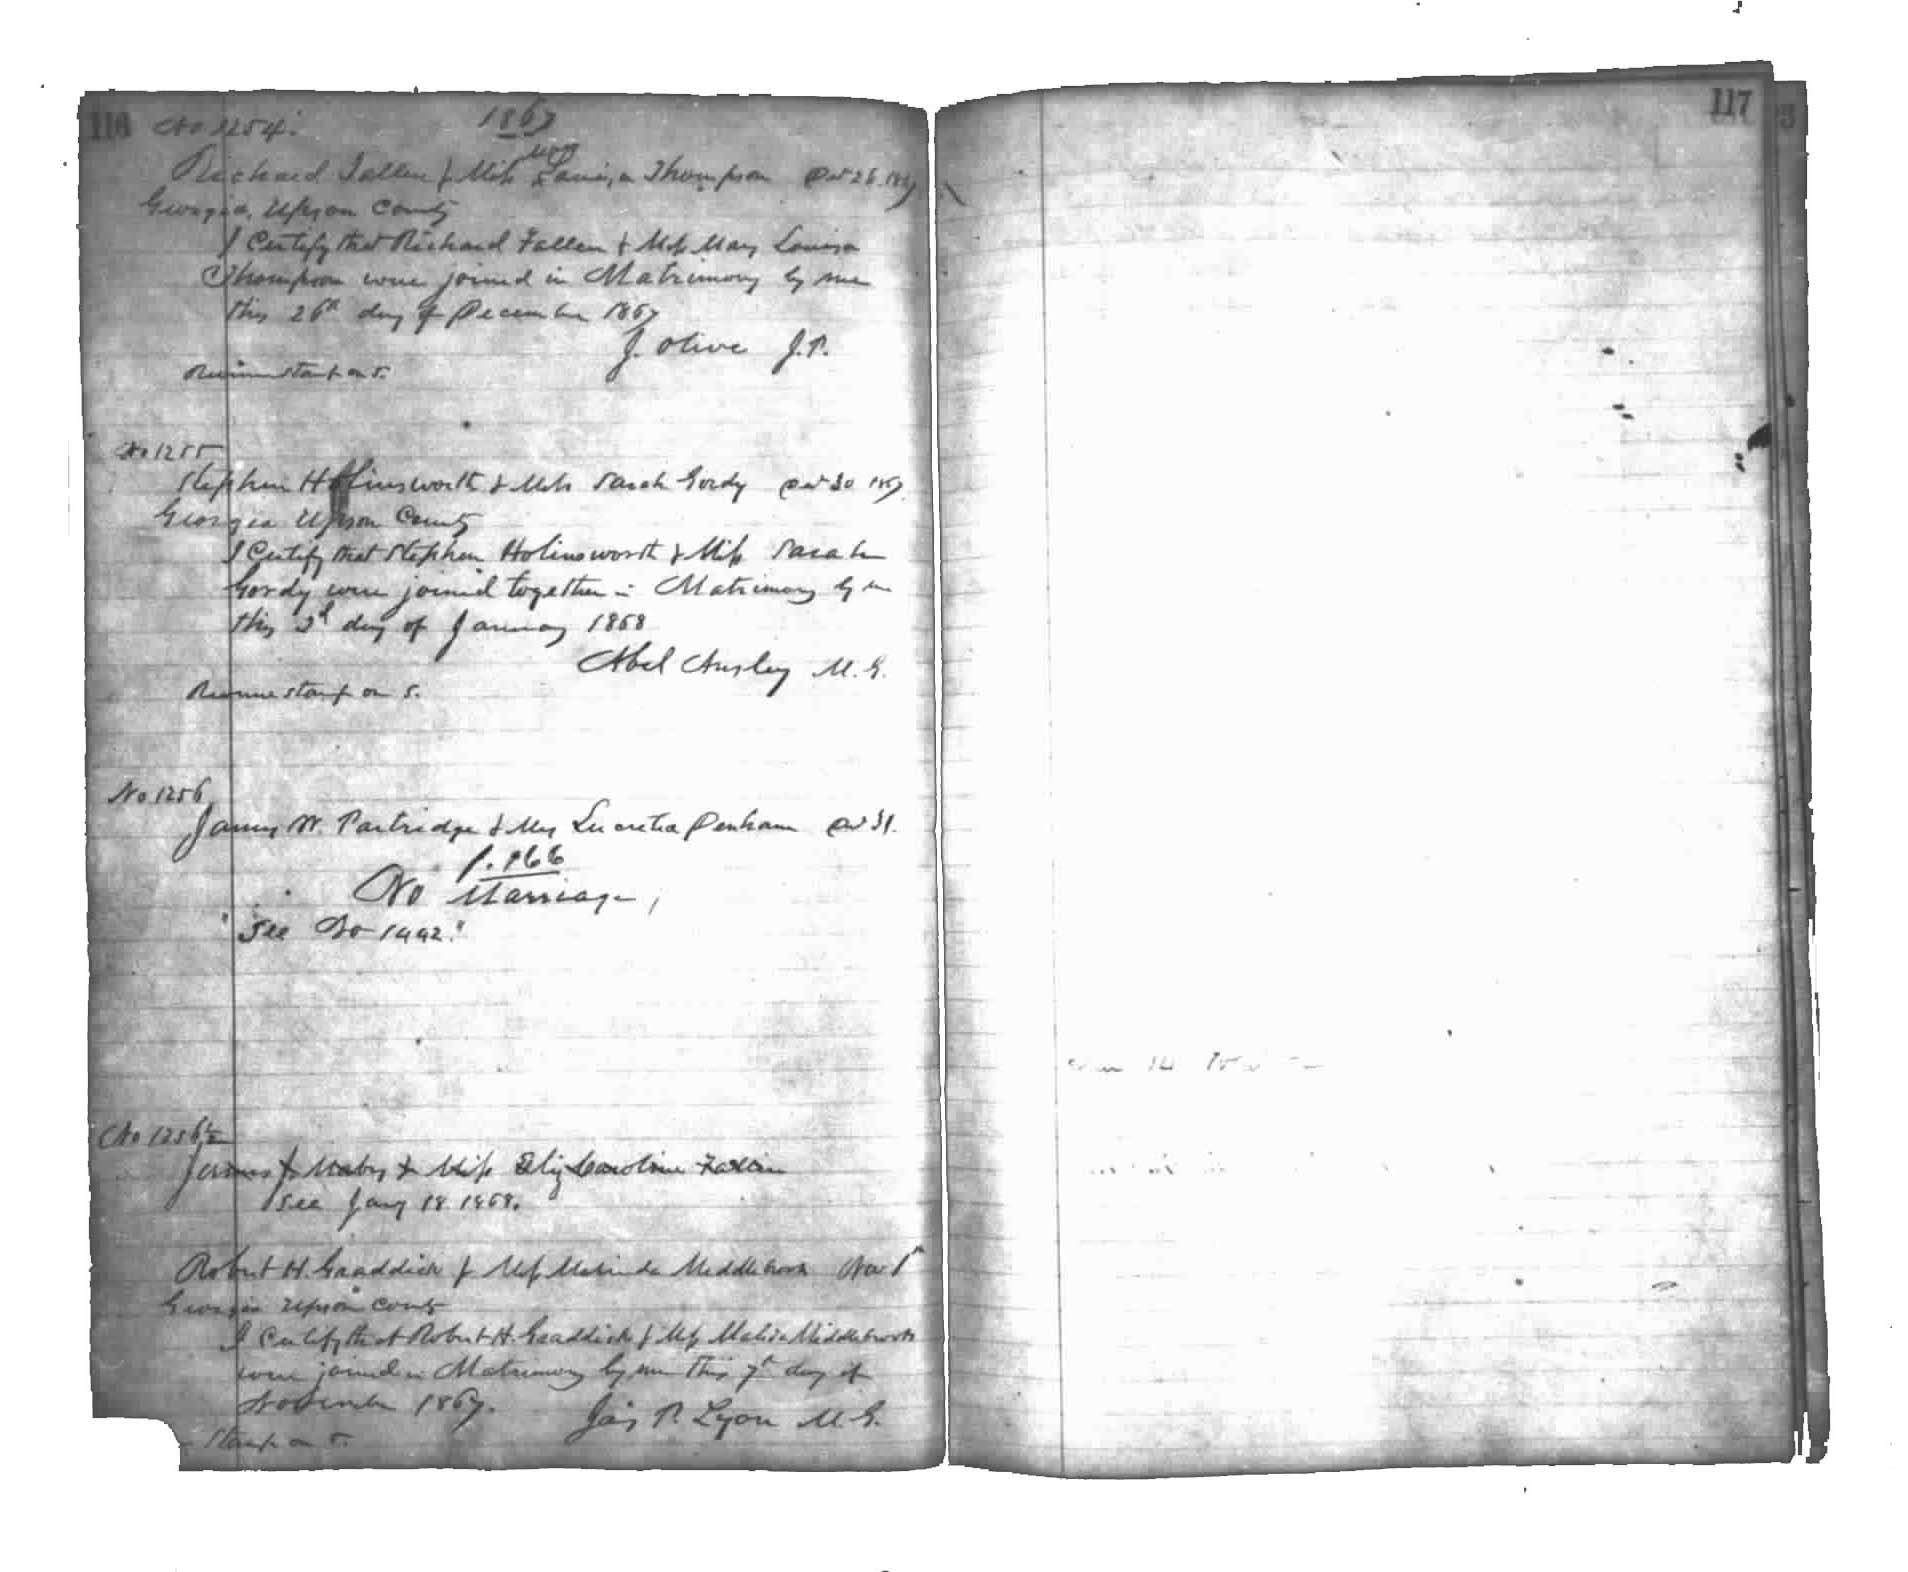 116 No 1254. 1867
Mary
Richard Fallen & Miss Louisa Thompson Dec 26. 1867
Georgia, Upson County
I Certify that Richard Fallen & Miss Mary Louisa
Thompson were joined in Matrimony by me
this 26th day of December 1867
J. Olive J.P.
Revenue stamp on 5.
No 1255
Stephen Holinsworth & Miss Sarah Gordy Dec 30 1867
Georgia Upson County
I Certify that Stephen Holinsworth & Miss Sarah
Gordy were joined together in Matrimony by me
this 2d day of January 1868
Abel Ansley M.G.
Revenue stamp on 5.
No 1256
James W. Partridge & Mrs Lucretia Denham Dec 31.
p. 166
No Marriage,
"See No 1442."
No 1256½
James & Miss Caroline
See Jany 18 1868.
Robert H. Graddick & Miss Malinda Middlebrook Nov
Georgia Upson County
I Certify that Robert H. Graddick & Miss Middlebrooks
were joined in Matrimony by me this 7th day of
November 1867. Jas P. Lyon M.G.
Stamp on 5.
117